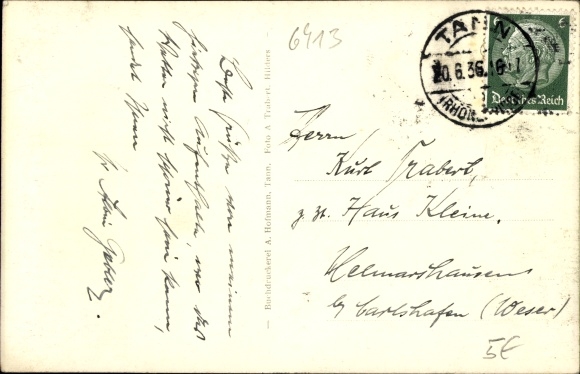 Beste Grüße von meinem
hiesigen Aufenthalte, wo das
Wetter nicht schöner sein kann,
sendet Ihnen
Ihr
6413
TANN
20.6.36.
(RHÖN)
6
6
Deutsches Reich
Herrn
Kurt Trabert,
z. Zt. Haus Kleine.
Helmarshausen
b/ Carlshafen (Weser)
5€
— Buchdruckerei A. Hofmann, Tann. Foto A. Trabert, Hilders —